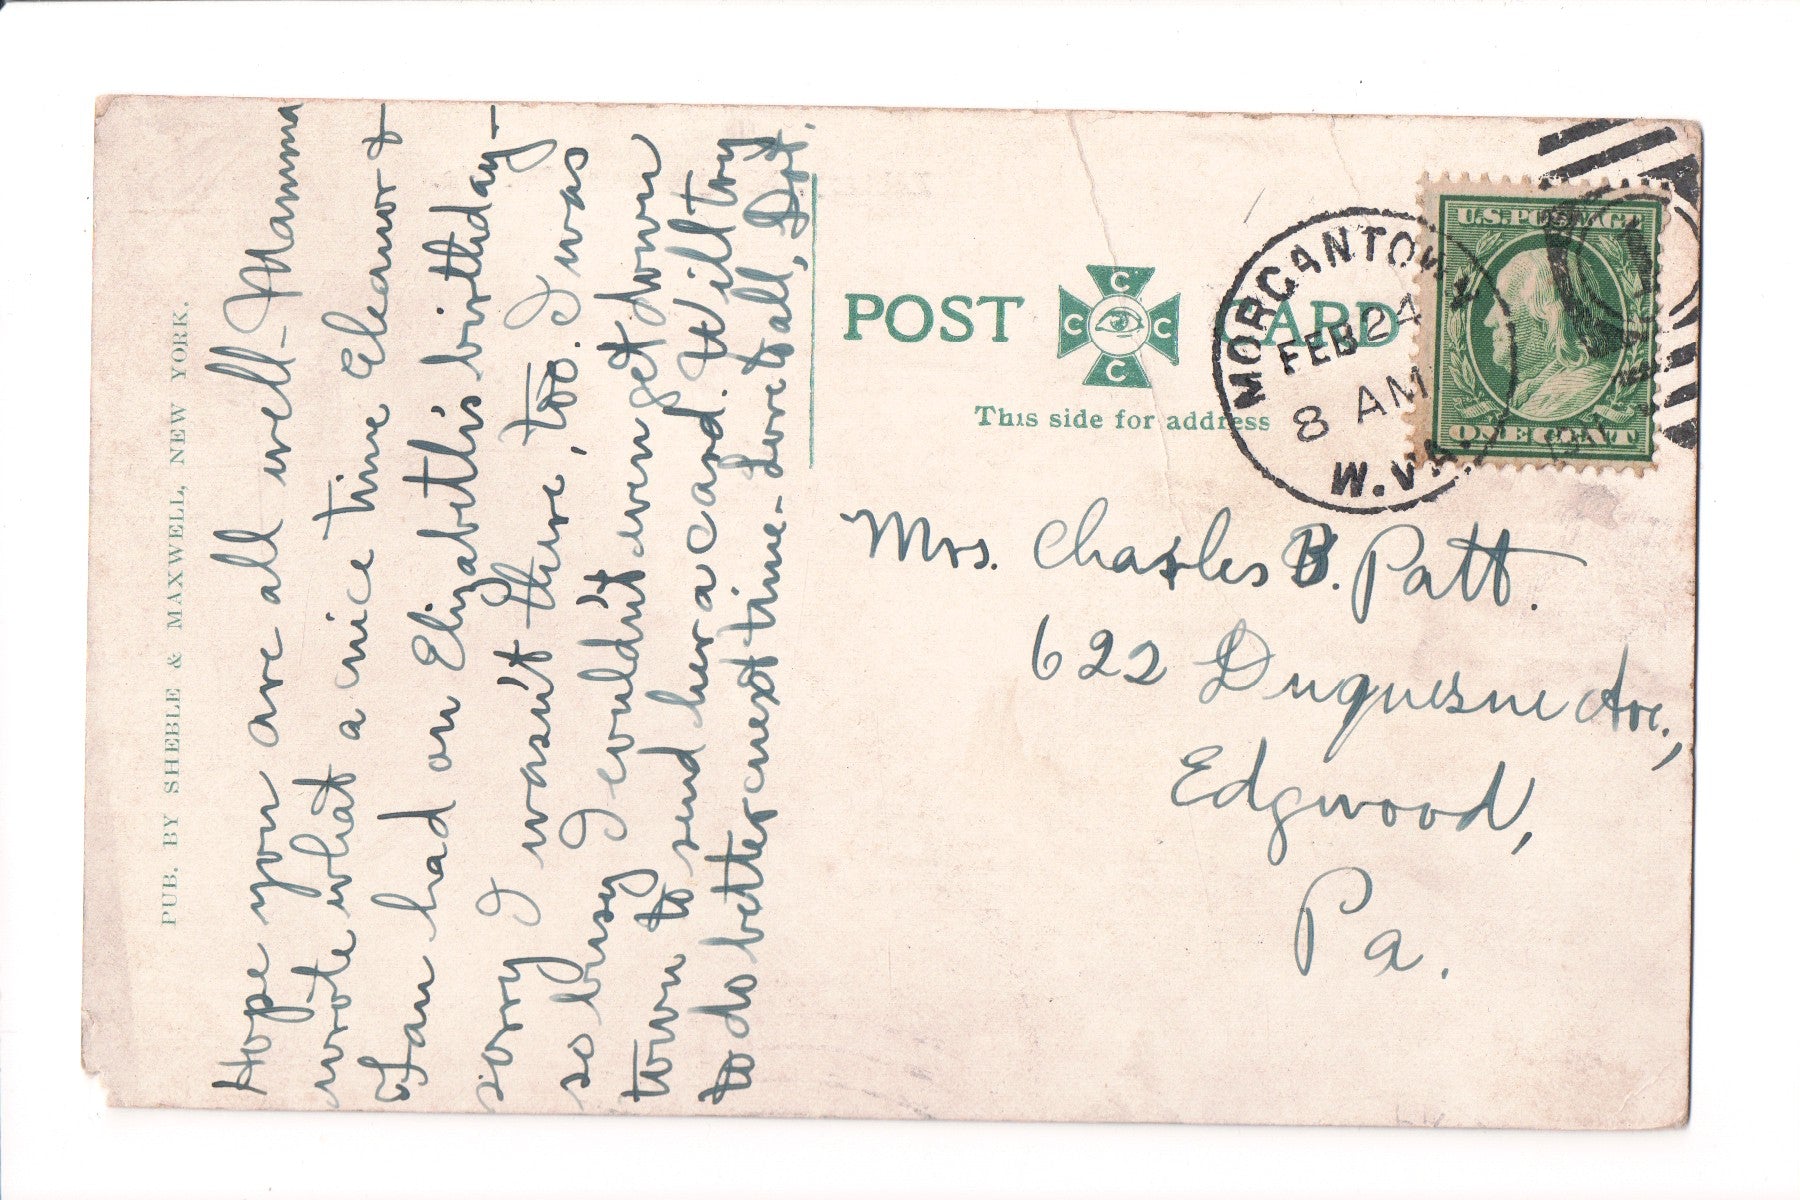 PUB. BY SHEBLE & MAXWELL, NEW YORK.
Hope you are all well - Mamma
wrote what a nice time Eleanor &
Fan had on Elizabeth's birthday -
sorry I wasn't there, too. I was
so busy I couldn't even get down
town to send her a card. Will try
to do better next time - Love to all, Dot.
POST CARD
C
C C
C
This side for address
MORGANTOWN
FEB 24
8 AM
1911
W. VA.
U.S. POSTAGE
ONE CENT
Mrs. Charles B. Patt.
622 Duquesne Ave.,
Edgwood,
Pa.